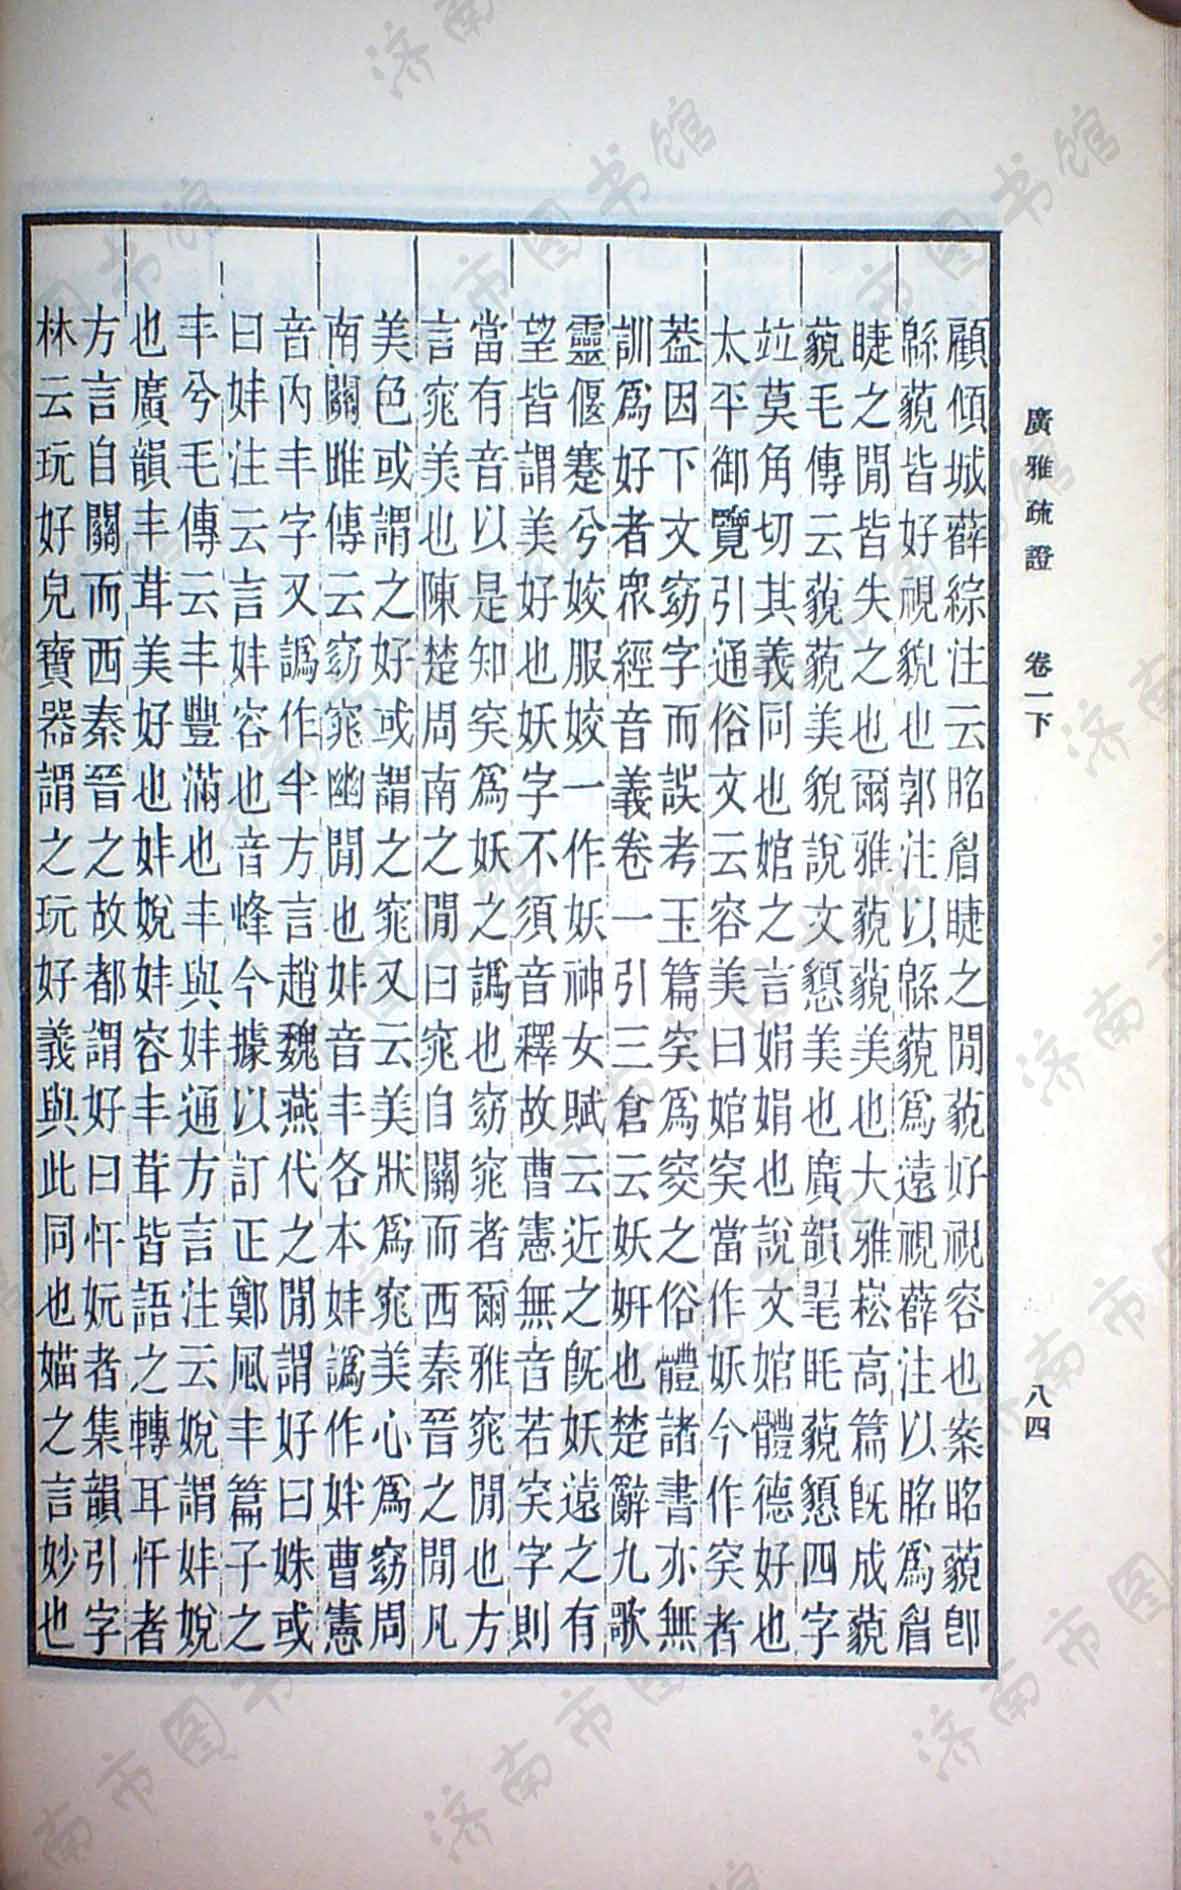 廣雅疏證　卷一下　八四
顧傾城薛綜注云眳䁈睫之閒藐好視容也案昭藐卽
緜藐皆好視貌也郭注以緜藐爲遠視薛注以眳爲䁈
睫之閒皆失之也爾雅藐藐美也大雅崧高篇旣成藐
藐毛傳云藐藐美貌說文懇美也廣韻毣眊藐懇四字
竝莫角切其義同也婠之言娟娟也說文婠體德好也
太平御覽引通俗文云容美曰婠㚣當作妖今作㚣者
葢因下文窈字而誤考玉篇㚣爲窔之俗體諸書亦無
訓爲好者眾經音義卷一引三倉云妖姸也楚辭九歌
靈偃蹇兮姣服姣一作妖神女賦云近之旣妖遠之有
望皆謂美好也妖字不須音釋故曹憲無音若㚣字則
當有音以是知㚣爲妖之譌也窈窕者爾雅窕閒也方
言窕美也陳楚周南之閒曰窕自關而西秦晉之閒凡
美色或謂之好或謂之窕又云美狀爲窕美心爲窈周
南關雎傳云窈窕幽閒也妦音丰各本妦譌作姅曹憲
音內丰字又譌作半方言趙魏燕代之閒謂好曰姝或
曰妦注云言妦容也音峰今據以訂正鄭風丰篇子之
丰兮毛傳云丰豐滿也丰與妦通方言注云娧謂妦娧
也廣韻丰茸美好也妦娧妦容丰茸皆語之轉耳忓者
方言自關而西秦晉之故都謂好曰忓妧者集韻引字
林云玩好皃寶器謂之玩好義與此同也媌之言妙也